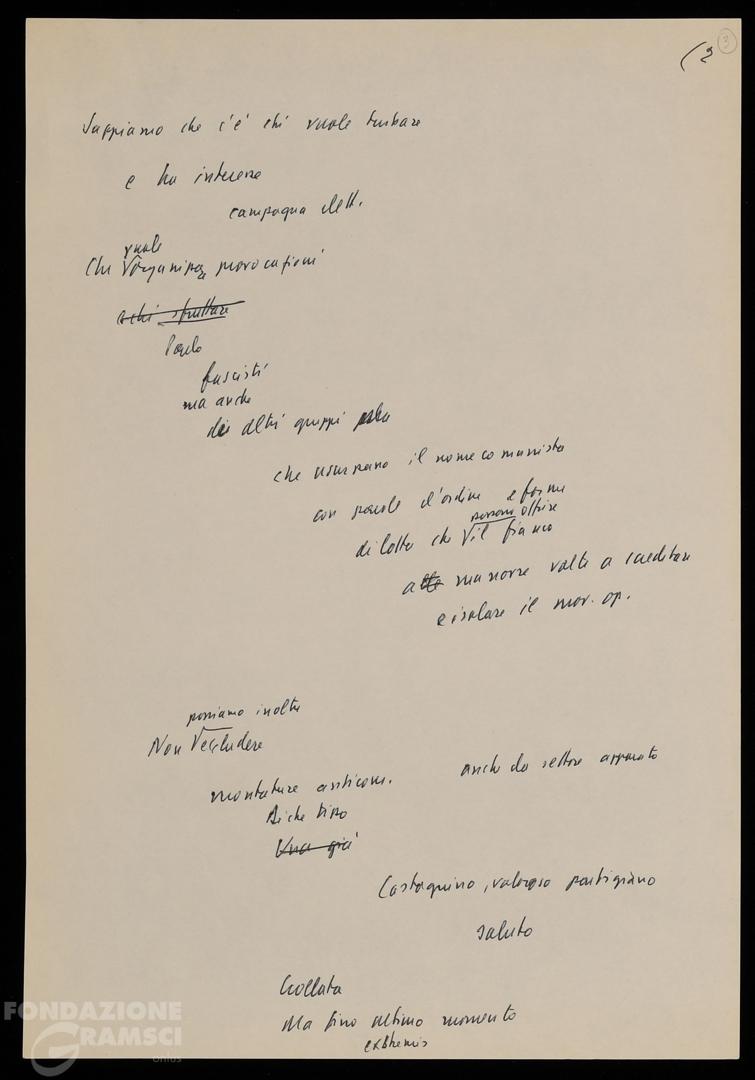 (2
3
Sappiamo che c'è chi vuole turbare
e ha interesse
campagna elett.
vuole
Chi organizza provocazioni
a chi sfruttare
Parlo
fascisti
ma anche
di altri gruppi
che usurpano il nome comunista
con parole d'ordine e forme
possono offrire
di lotta che il fianco
a manovre volte a screditare
e isolare il mov. op.
possiamo inoltre
Non escludere
montature anticom. anche da settore apparato
Di che tipo
Una già
Castagnino, valoroso partigiano
saluto
Crollata
Ma fino ultimo momento
extremis
FONDAZIONE
GRAMSCI
onlus